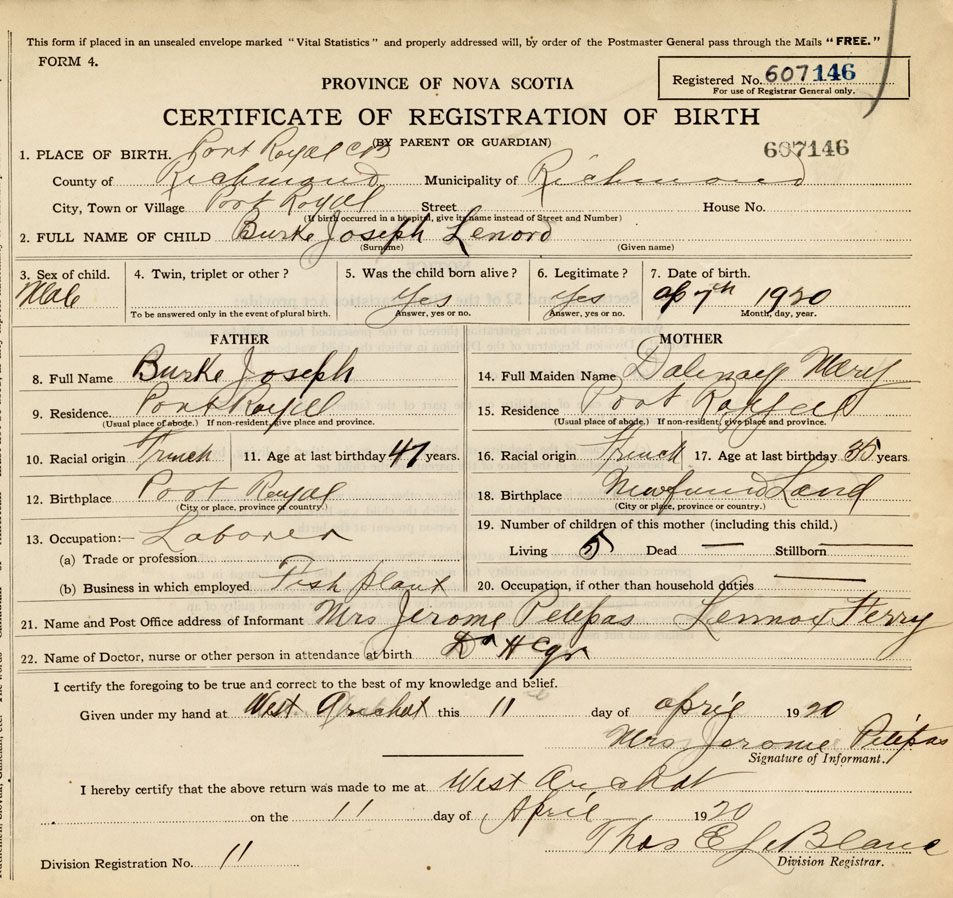 This form if placed in an unsealed envelope marked "Vital Statistics" and properly addressed will, by order of the Postmaster General pass through the Mails "FREE."
FORM 4.
Registered No. 607146
For use of Registrar General only.
PROVINCE OF NOVA SCOTIA
CERTIFICATE OF REGISTRATION OF BIRTH
(BY PARENT OR GUARDIAN)
607146
1. PLACE OF BIRTH. Port Royal CB
County of Richmond Municipality of Richmond
City, Town or Village Port Royal Street House No.
(If birth occurred in a hospital, give its name instead of Street and Number)
2. FULL NAME OF CHILD Burke Joseph Lenord
(Surname) (Given name)
3. Sex of child. Male
4. Twin, triplet or other?
To be answered only in the event of plural birth.
5. Was the child born alive? Yes
Answer, yes or no.
6. Legitimate? Yes
Answer, yes or no.
7. Date of birth. ap 7th 1920
Month, day, year.
FATHER
8. Full Name Burke Joseph
9. Residence. Port Royal
(Usual place of abode.) If non-resident, give place and province.
10. Racial origin French 11. Age at last birthday 47 years.
12. Birthplace Port Royal
(City or place, province or country.)
13. Occupation:- Laborer
(a) Trade or profession
(b) Business in which employed Fish plant
MOTHER
14. Full Maiden Name Mary
15. Residence Port Royal
(Usual place of abode.) If non-resident, give place and province.
16. Racial origin French 17. Age at last birthday 35 years.
18. Birthplace NewfoundLand
(City or place, province or country.)
19. Number of children of this mother (including this child.)
Living 5 Dead — Stillborn —
20. Occupation, if other than household duties —
21. Name and Post Office address of Informant Mrs Jerome Petepas Lennox Ferry
22. Name of Doctor, nurse or other person in attendance at birth Dr
I certify the foregoing to be true and correct to the best of my knowledge and belief.
Given under my hand at West Arichat this 11 day of april 1920
Mrs Jerome Petepas
Signature of Informant.
I hereby certify that the above return was made to me at West Arichat
on the 11 day of April 1920
Thos E LeBlanc
Division Registrar.
Division Registration No. 11